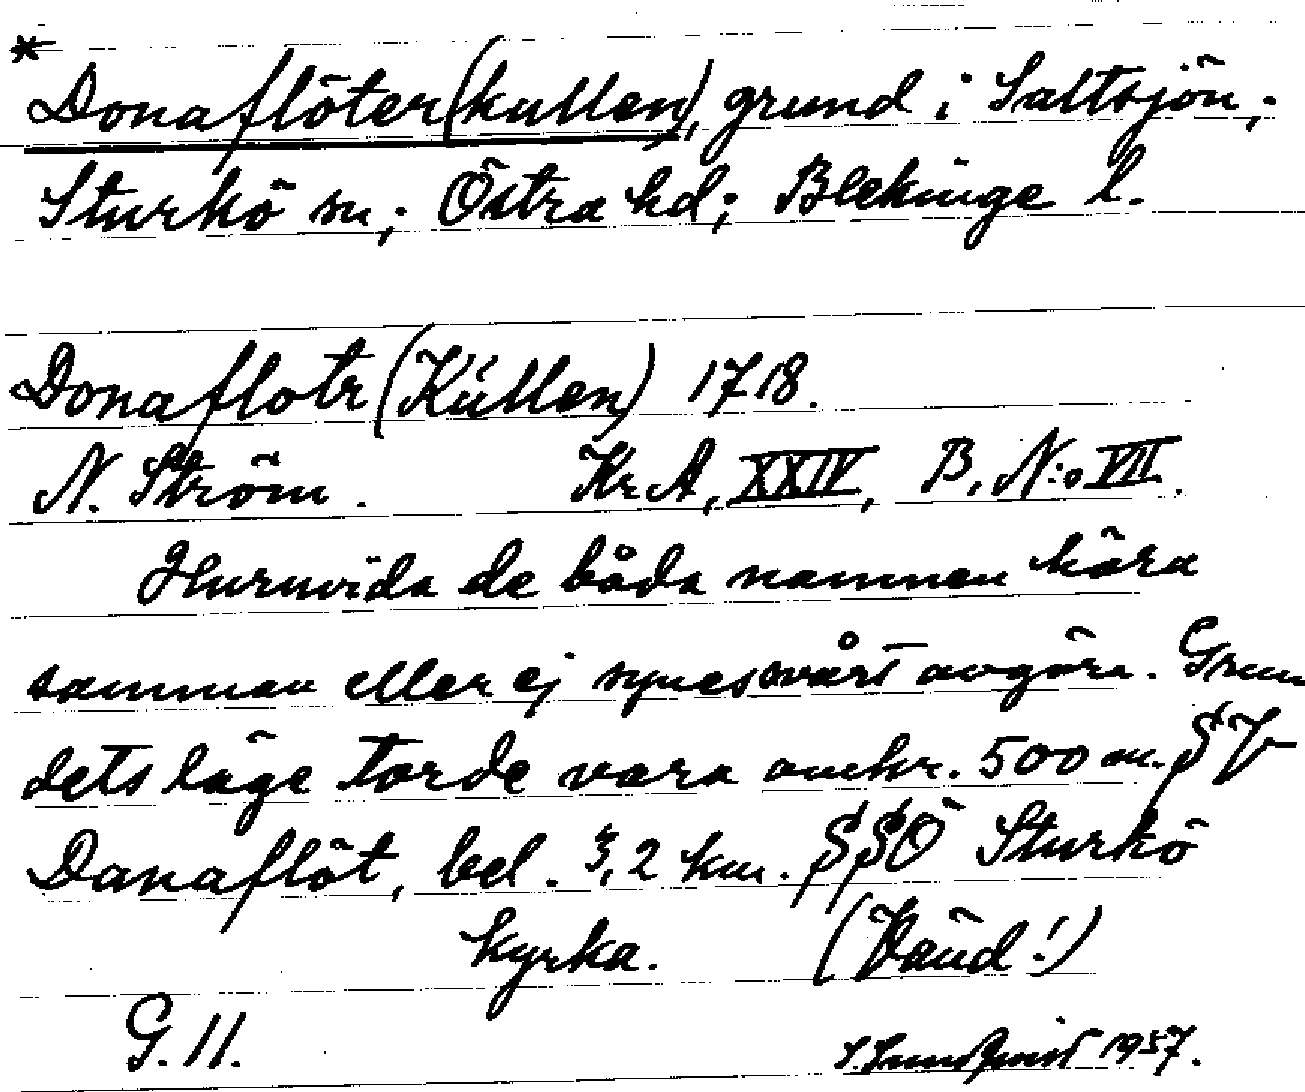 * Donaflöter(kullen), grund i Saltsjön,
Sturkö sn; Östra hd; Blekinge l.
Donaflotr (Küllen) 1718.
N. Ström. Kr. A, XXIV, B, N:o VII.
Huruvida de båda namnen höra
samman eller ej synes svårt avgöra. Grun-
dets läge torde vara omkr. 500 m. SV
Danaflöt, bel. 3,2 km. SSÖ Sturkö
kyrka. (Vänd!)
G. 11. S. Sundqvist 1957.